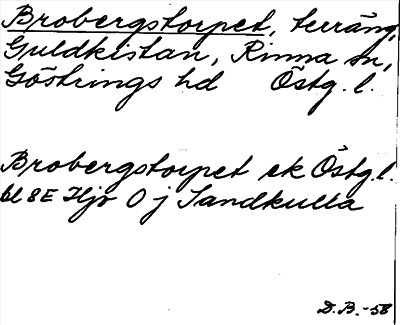 Brobergstorpet, terräng,
Guldkistan, Rinna sn,
Göstrings hd Östg. l.
Brobergstorpet ek Östg.l.
bl 8E Hjo O j Sandkulla
D.B.-58